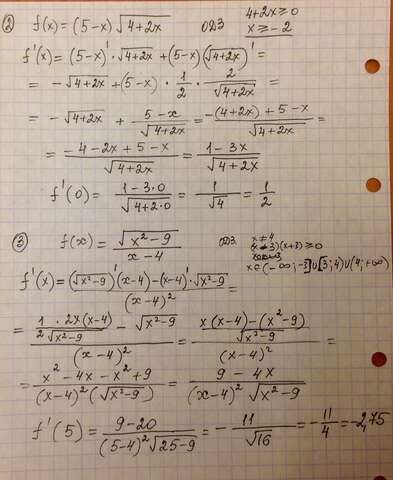 ② f(x) = (5-x)√(4+2x)   ОДЗ   4+2x ≥ 0
x ≥ -2
f'(x) = (5-x)'·√(4+2x) + (5-x)(√(4+2x))' =
= -√(4+2x) + (5-x)·1/2·2/√(4+2x) =
= -√(4+2x) + (5-x)/√(4+2x) = (-(4+2x)+5-x)/√(4+2x) =
= (-4-2x+5-x)/√(4+2x) = (1-3x)/√(4+2x)
f'(0) = (1-3·0)/√(4+2·0) = 1/√4 = 1/2
③ f(x) = √(x²-9)/(x-4)   ОДЗ   x ≠ 4
(x-3)(x+3) ≥ 0
x ∈ (-∞; -3] ∪ [3; 4) ∪ (4; +∞)
f'(x) = ((√(x²-9))'(x-4) - (x-4)'·√(x²-9))/(x-4)² =
= (1·2x(x-4)/(2√(x²-9)) - √(x²-9))/(x-4)² = ((x(x-4)-(x²-9))/√(x²-9))/(x-4)² =
= (x²-4x-x²+9)/((x-4)²(√(x²-9))) = (9-4x)/((x-4)²√(x²-9))
f'(5) = (9-20)/((5-4)²√(25-9)) = -11/√16 = -11/4 = -2,75